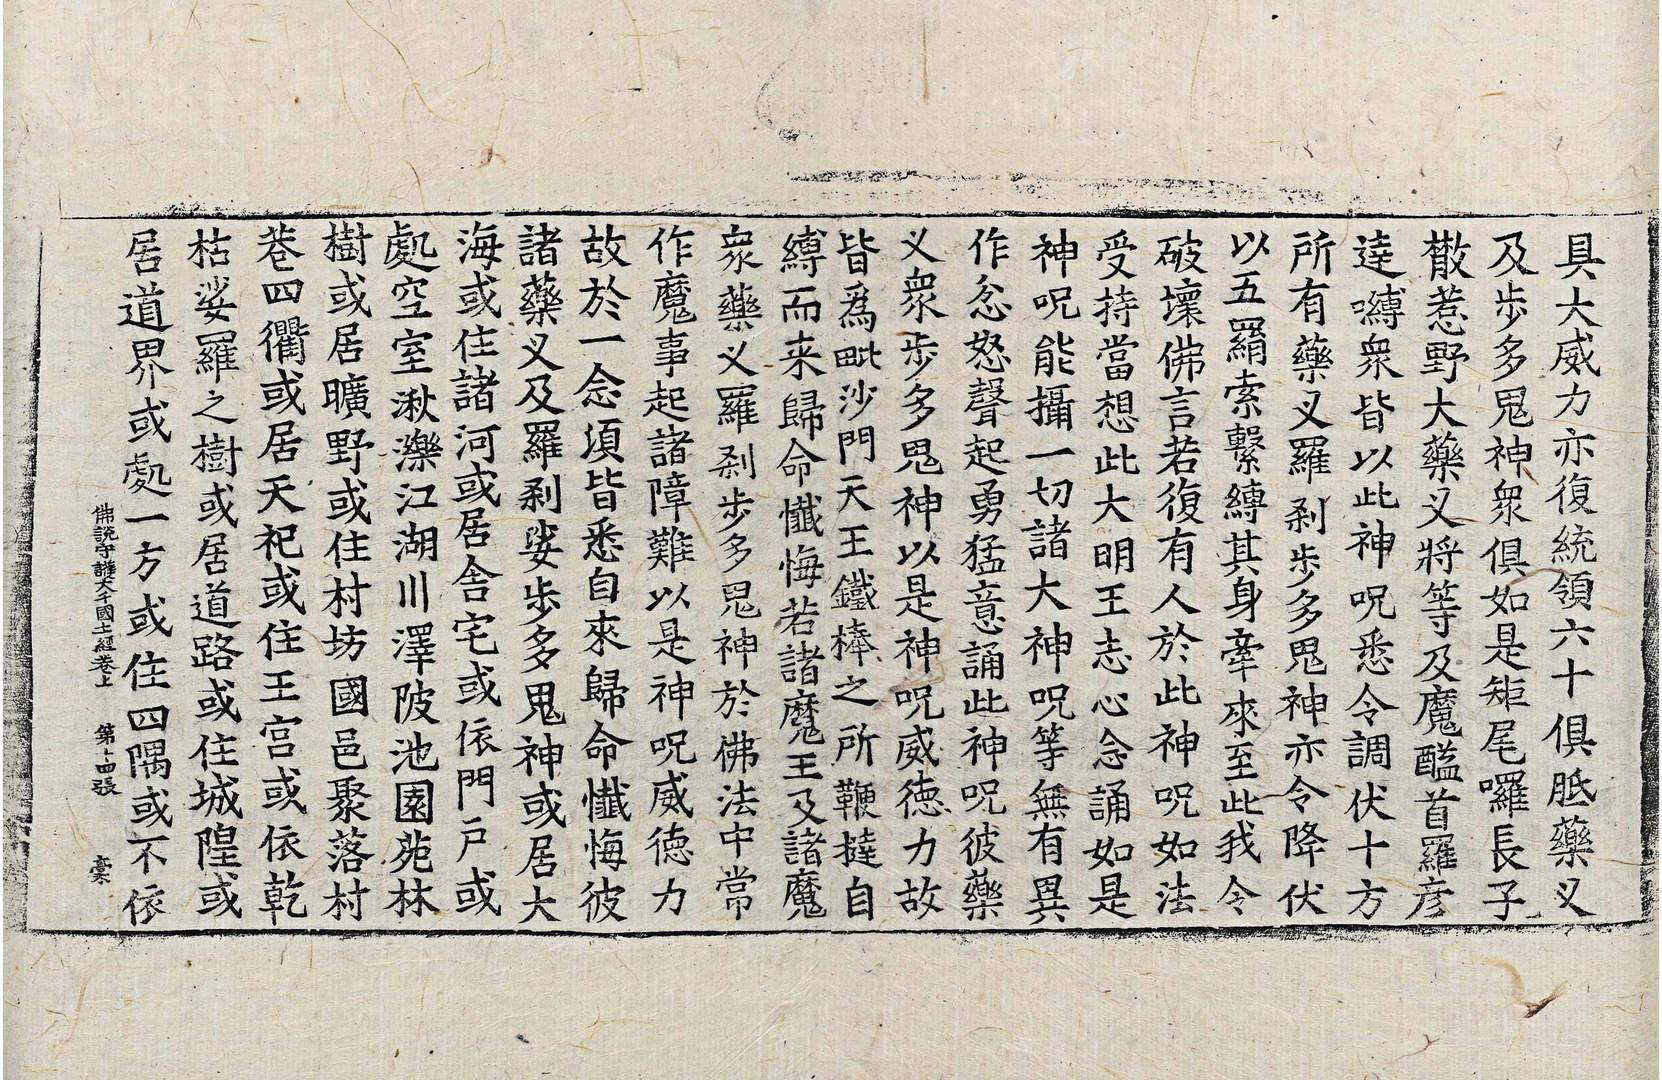 具大威力亦復統領六十俱胝藥叉
及步多鬼神衆俱如是矩尾囉長子
散惹野大藥叉將等及魔醯首羅彦
達嚩衆皆以此神呪悉令調伏十方
所有藥叉羅剎步多鬼神亦令降伏
以五羂索繫縛其身牽來至此我令
破壞佛言若復有人於此神呪如法
受持當想此大明王志心念誦如是
神呪能攝一切諸大神呪等無有異
作忿怒聲起勇猛意誦此神呪彼藥
叉衆步多鬼神以是神呪威德力故
皆爲毗沙門天王鐵棒之所鞭撻自
縛而来歸命懺悔若諸魔王及諸魔
衆藥叉羅剎步多鬼神於佛法中常
作魔事起諸障難以是神呪威德力
故於一念頃皆悉自來歸命懺悔彼
諸藥叉及羅剎娑步多鬼神或居大
海或住諸河或居舍宅或依門戶或
處空室湫濼江湖川澤陂池園苑林
樹或居曠野或住村坊國邑聚落村
巷四衢或居天祀或住王宮或依乾
枯娑羅之樹或居道路或住城隍或
居道界或處一方或住四隅或不依
佛說守護大千國土經卷上 第十四張 稾